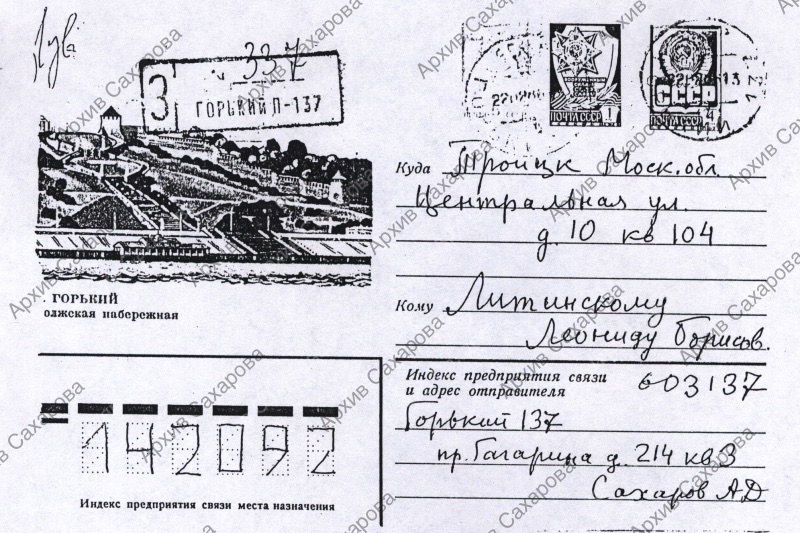 337
З
ГОРЬКИЙ П-137
ПОЧТА СССР 1
СССР
ПОЧТА СССР 4
Куда Троицк Моск.обл.
Центральная ул.
д. 10 кв 104
ГОРЬКИЙ
олжская набережная
Кому Литинскому
Леониду Борисов.
Индекс предприятия связи
и адрес отправителя 603137
Горький 137
пр. Гагарина д. 214 кв 3
Сахаров АД
142092
Индекс предприятия связи места назначения
Архив Сахарова